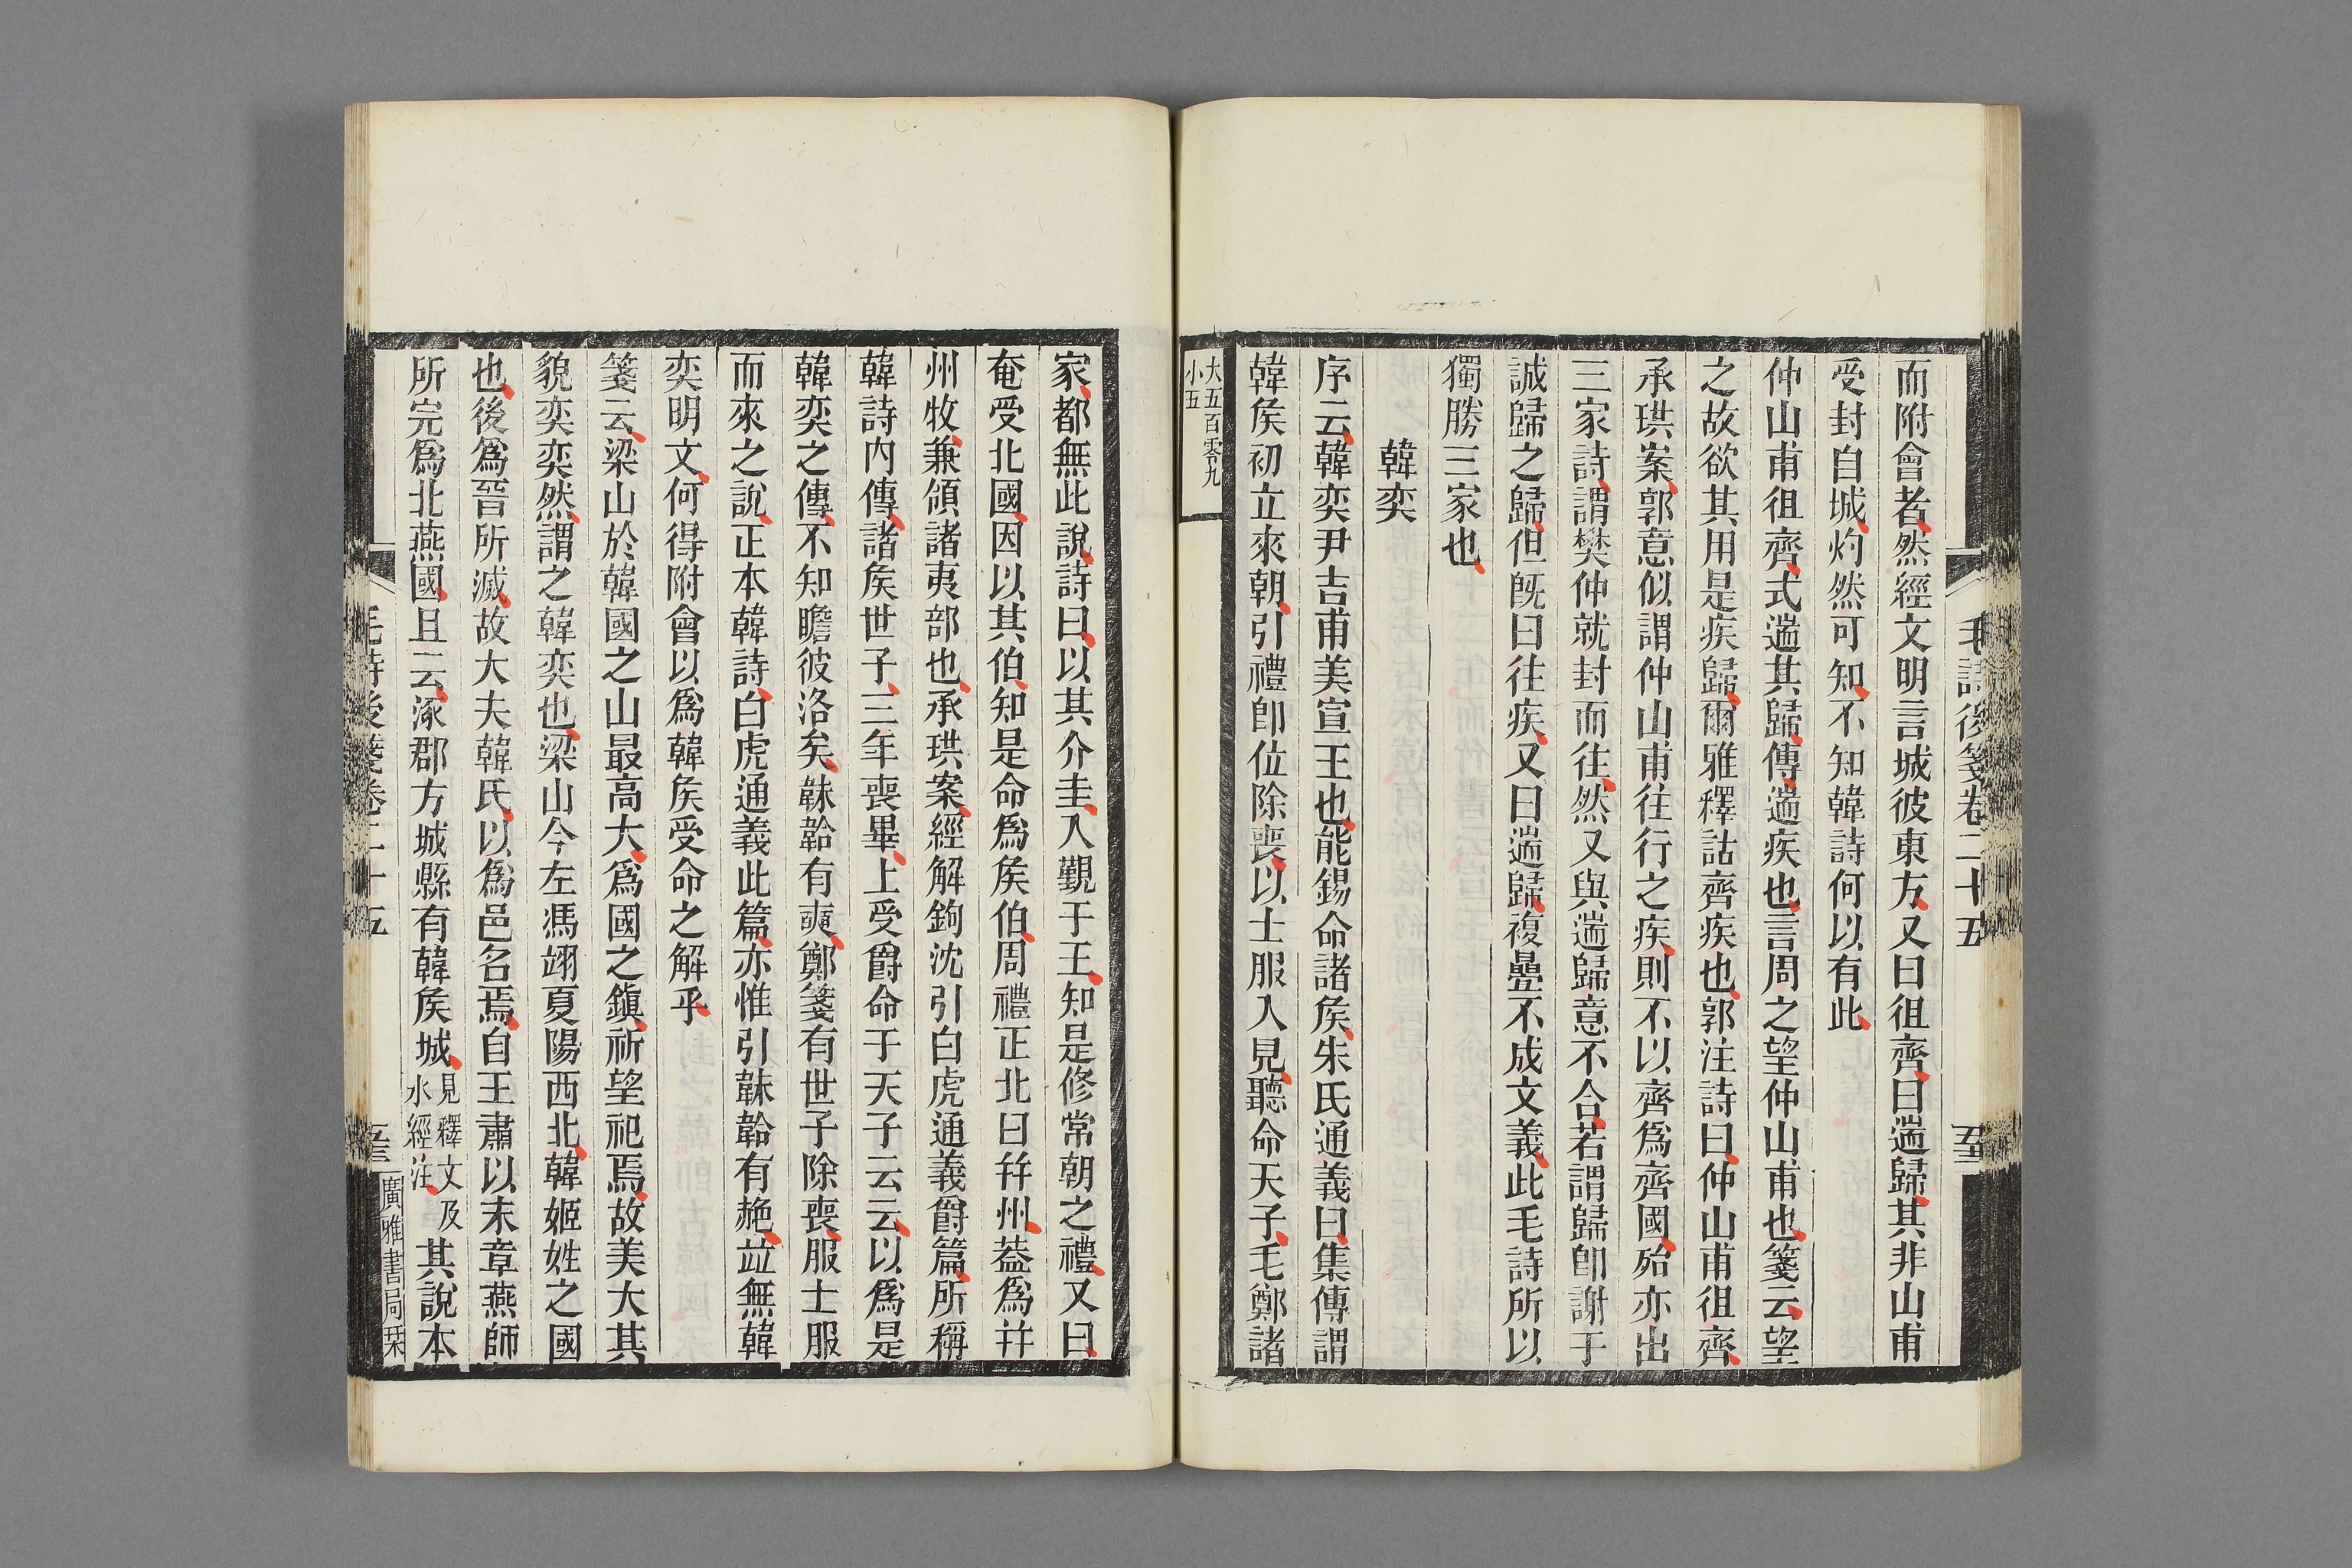 毛詩後箋卷二十五
而附會者然經文明言城彼東方又曰徂齊曰遄歸其非山甫
受封自城灼然可知不知韓詩何以有此
仲山甫徂齊式遄其歸傳遄疾也言周之望仲山甫也箋云望
之故欲其用是疾歸爾雅釋詁齊疾也郭注詩曰仲山甫徂齊
承珙案郭意似謂仲山甫往行之疾則不以齊爲齊國殆亦出
三家詩謂樊仲就封而往然又與遄歸意不合若謂歸卽謝于
誠歸之歸但旣曰往疾又曰遄歸複疊不成文義此毛詩所以
獨勝三家也
韓奕
序云韓奕尹吉甫美宣王也能錫命諸矦朱氏通義曰集傳謂
韓矦初立來朝引禮卽位除喪以士服入見聽命天子毛鄭諸
大五百零九
小五
家都無此說詩曰以其介圭入覲于王知是修常朝之禮又曰
奄受北國因以其伯知是命爲矦伯周禮正北曰幷州葢爲幷
州牧兼領諸夷部也承珙案經解鉤沈引白虎通義爵篇所稱
韓詩內傳諸矦世子三年喪畢上受爵命于天子云云以爲是
韓奕之傳不知瞻彼洛矣韎韐有奭鄭箋有世子除喪服士服
而來之說正本韓詩白虎通義此篇亦惟引韎韐有赩竝無韓
奕明文何得附會以爲韓矦受命之解乎
箋云梁山於韓國之山最高大爲國之鎭祈望祀焉故美大其
貌奕奕然謂之韓奕也梁山今左馮翊夏陽西北韓姬姓之國
也後爲晉所滅故大夫韓氏以爲邑名焉自王肅以末章燕師
所完爲北燕國且云涿郡方城縣有韓矦城見釋文及水經注其說本
毛詩後箋卷二十五
廣雅書局栞